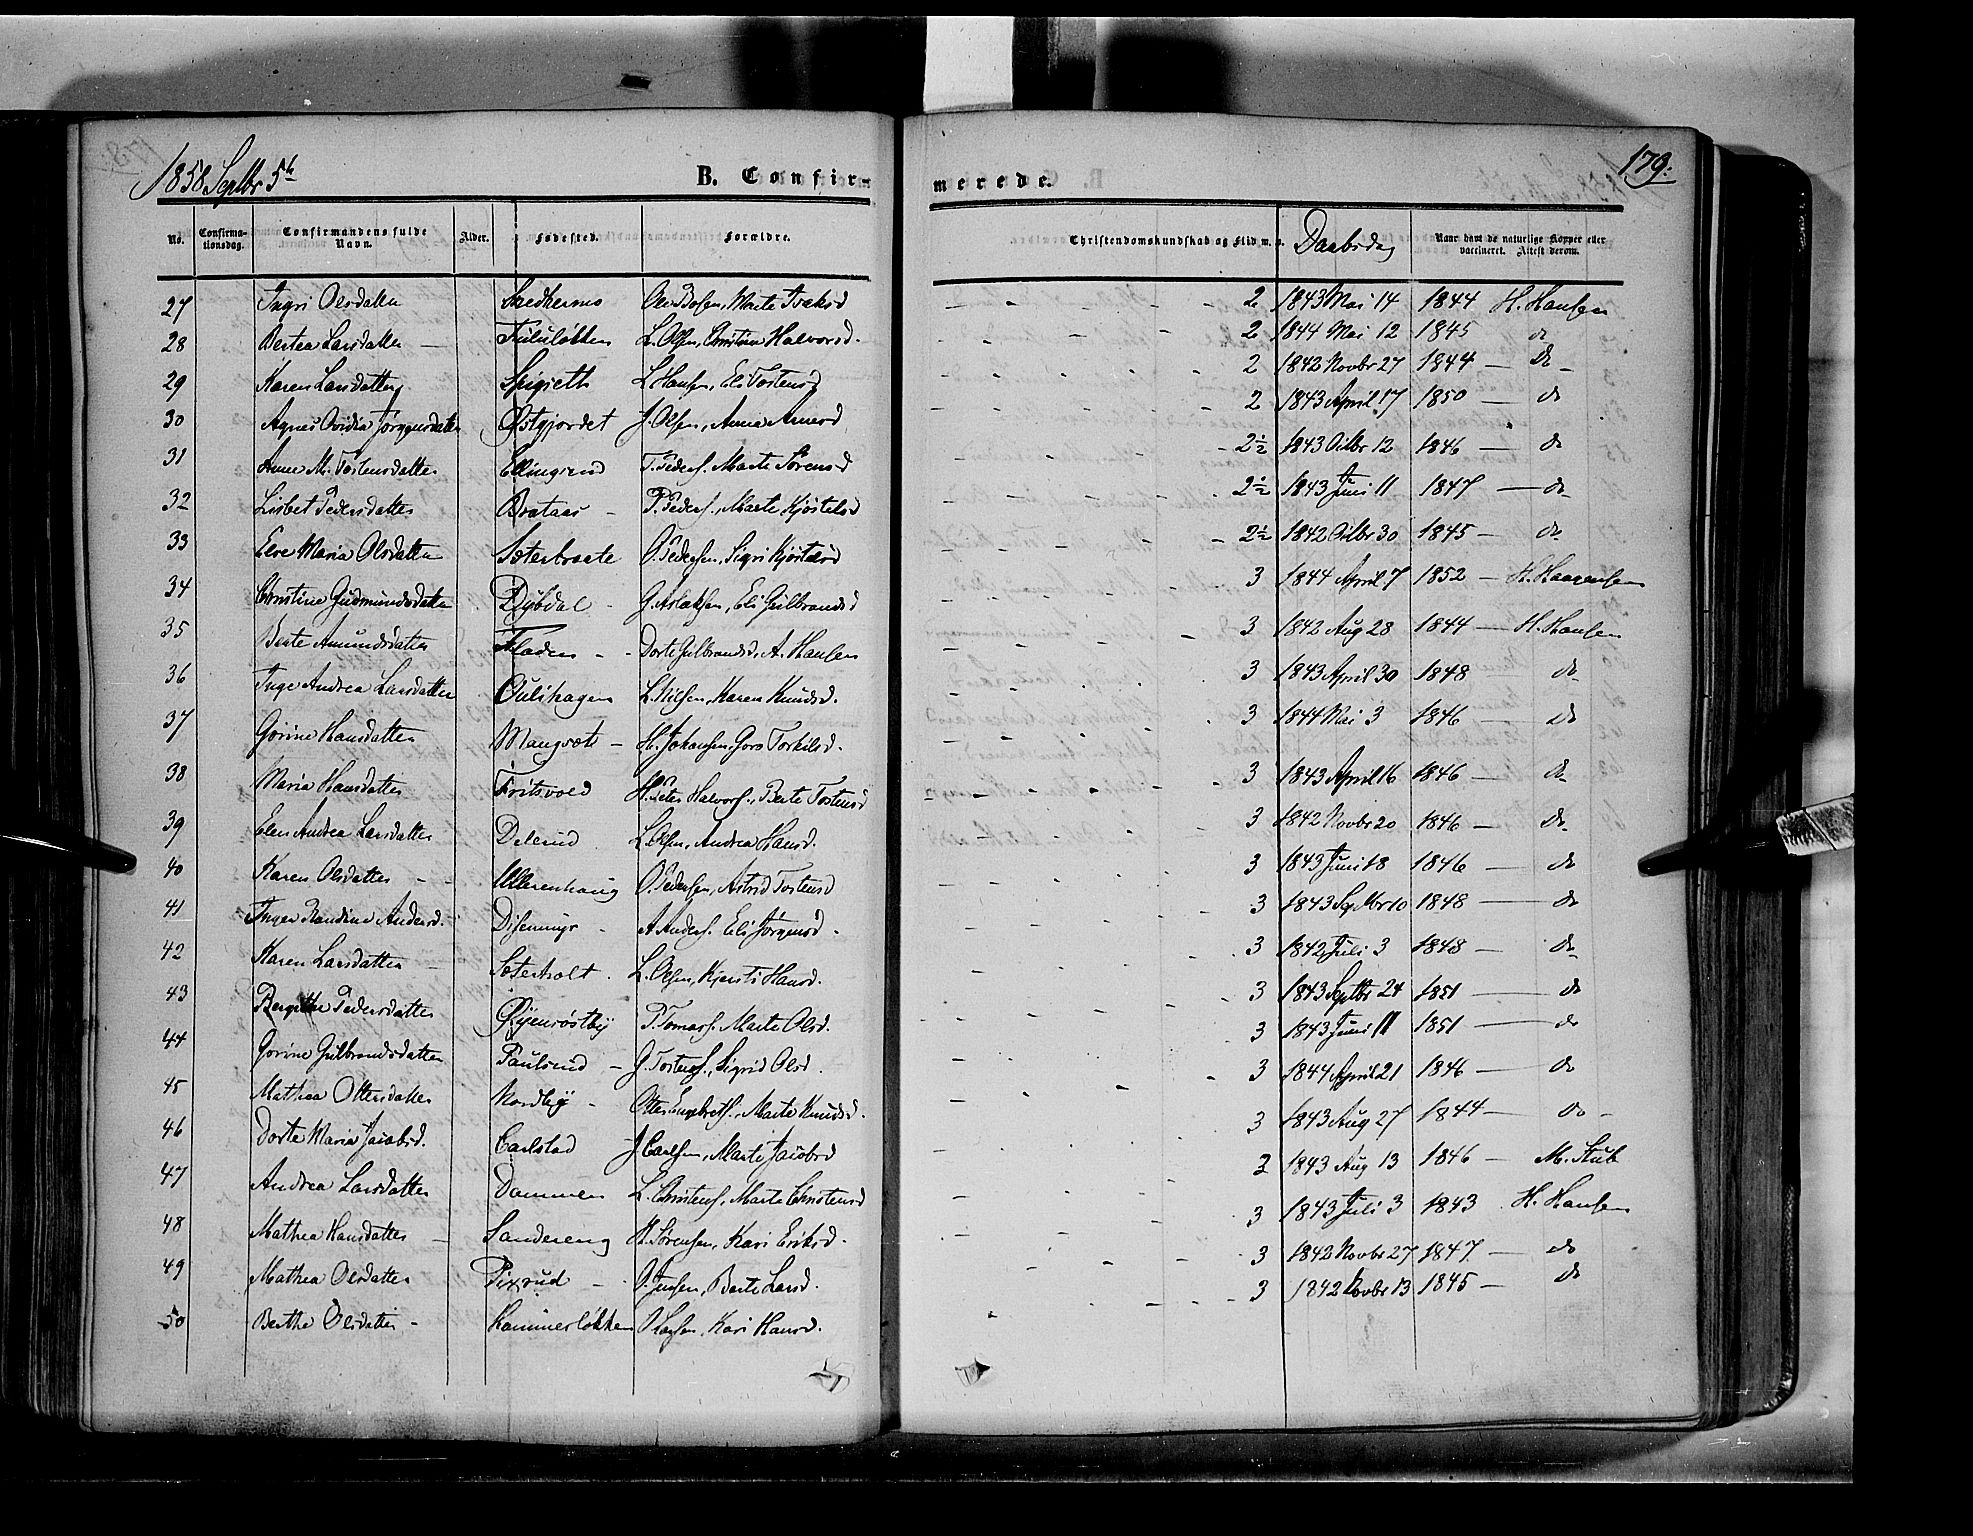 1858 Septbr 5te
B. Confir-
merede.
179.
No. Confirma-tionsdag. Confirmandens fulde Navn. Alder. Fødested. Forældre. Christendomskundskab og Flid m. m. Daabsdag Naar havt de naturlige Kopper eller vaccineret. Attest derom.
27 Ingri Olsdatter 2 1843 Mai 14 1844 H. Hansen
28 Bertea Larsdatter L. Olsen, Christine Halvorsd. 2 1844 Mai 12 1845 do
29 Karen Larsdatter L. Hansen, Eli Tostensd 2 1842 Novbr 27 1844 — do
30 Agnes Ovidia Jørgensdatter Østgjordet J. Olsen, Anna Arnesd 2 1843 April 17 1850 — do
31 Anne M. Tostensdatter Ellingsrud T. Peders. Marte Sørensd 2½ 1843 Octbr 12 1846 — do
32 Lisbet Pedersdatter Brataas P. Peders., Marte Kjøstelsd 2½ 1843 Juni 11 1847 — do
33 Else Maria Olsdatter Seterbraate O. Pedersen, Sigri Kjøstelsd 2½ 1842 Octbr 30 1845 — do
34 Christine Gudmundsdatter Dybdal G. Aslaksen, Eli Gulbrandsd 3 1844 April 7 1852 — H. Haavensen
35 Berte Amundsdatter Fladen Dorte Gulbrandsd, A. Hansen 3 1842 Aug 28 1844 — H. Hansen
36 Inge Andrea Larsdatter L. Nielsen, Karen Knudsd. 3 1843 April 30 1848 do
37 Gorine Hansdatter H. Johansen, Goro Torkilsd. 3 1844 Mai 3 1846 — do
38 Maria Hansdatter Fritsvold H. Peter Halvors., Berte Tostensd 3 1843 April 16 1846 — do
39 Elen Andrea Larsdatter Delerud L. Olsen, Andrea Hansd. 3 1842 Novbr 20 1846 — do
40 Karen Olsdatter Ullerenhaug O. Pedersen, Astrid Tostensd 3 1843 Juni 18 1846 — do
41 Inger Randine Andersd. A. Anders. Eli Jørgensd. 3 1843 Septbr 10 1848 — do
42 Karen Larsdatter Seterholt L. Olsen, Kjersti Hansd. 3 1842 Juli 3 1848 — do
43 Bergitte Pedersdatter Øyenrøstby P. Tomass. Marte Olsd. 3 1843 Septbr 24 1851 — do
44 Gorine Gulbrandsdatter Paulsrud G. Tostens., Sigrid Olsd. 3 1843 Juni 11 1851 — do
45 Mathea Ottersdatter Nordby Otter Engebrets., Marte Knudsd. 3 1844 April 21 1846 — do
46 Dorte Maria Jacobsd. Carlstad J. Carlsen, Marte Jacobsd 3 1843 Aug 27 1844 — do
47 Andrea Larsdatter Dammen L. Christens., Marte Christensd 3 1843 Aug 13 1846 — M. Stub
48 Mathea Hansdatter Sandereng H. Sørensen, Kari Eriksd. 3 1843 Juli 3 1843 H. Hansen
49 Mathea Olsdatter Pixrud O. Jensen, Berte Larsd. 3 1842 Novbr 27 1847 — do
50 Berthe Olsdatter Kammerløkken O. Larsen, Kari Hansd. 3 1842 Novbr 13 1845 — do